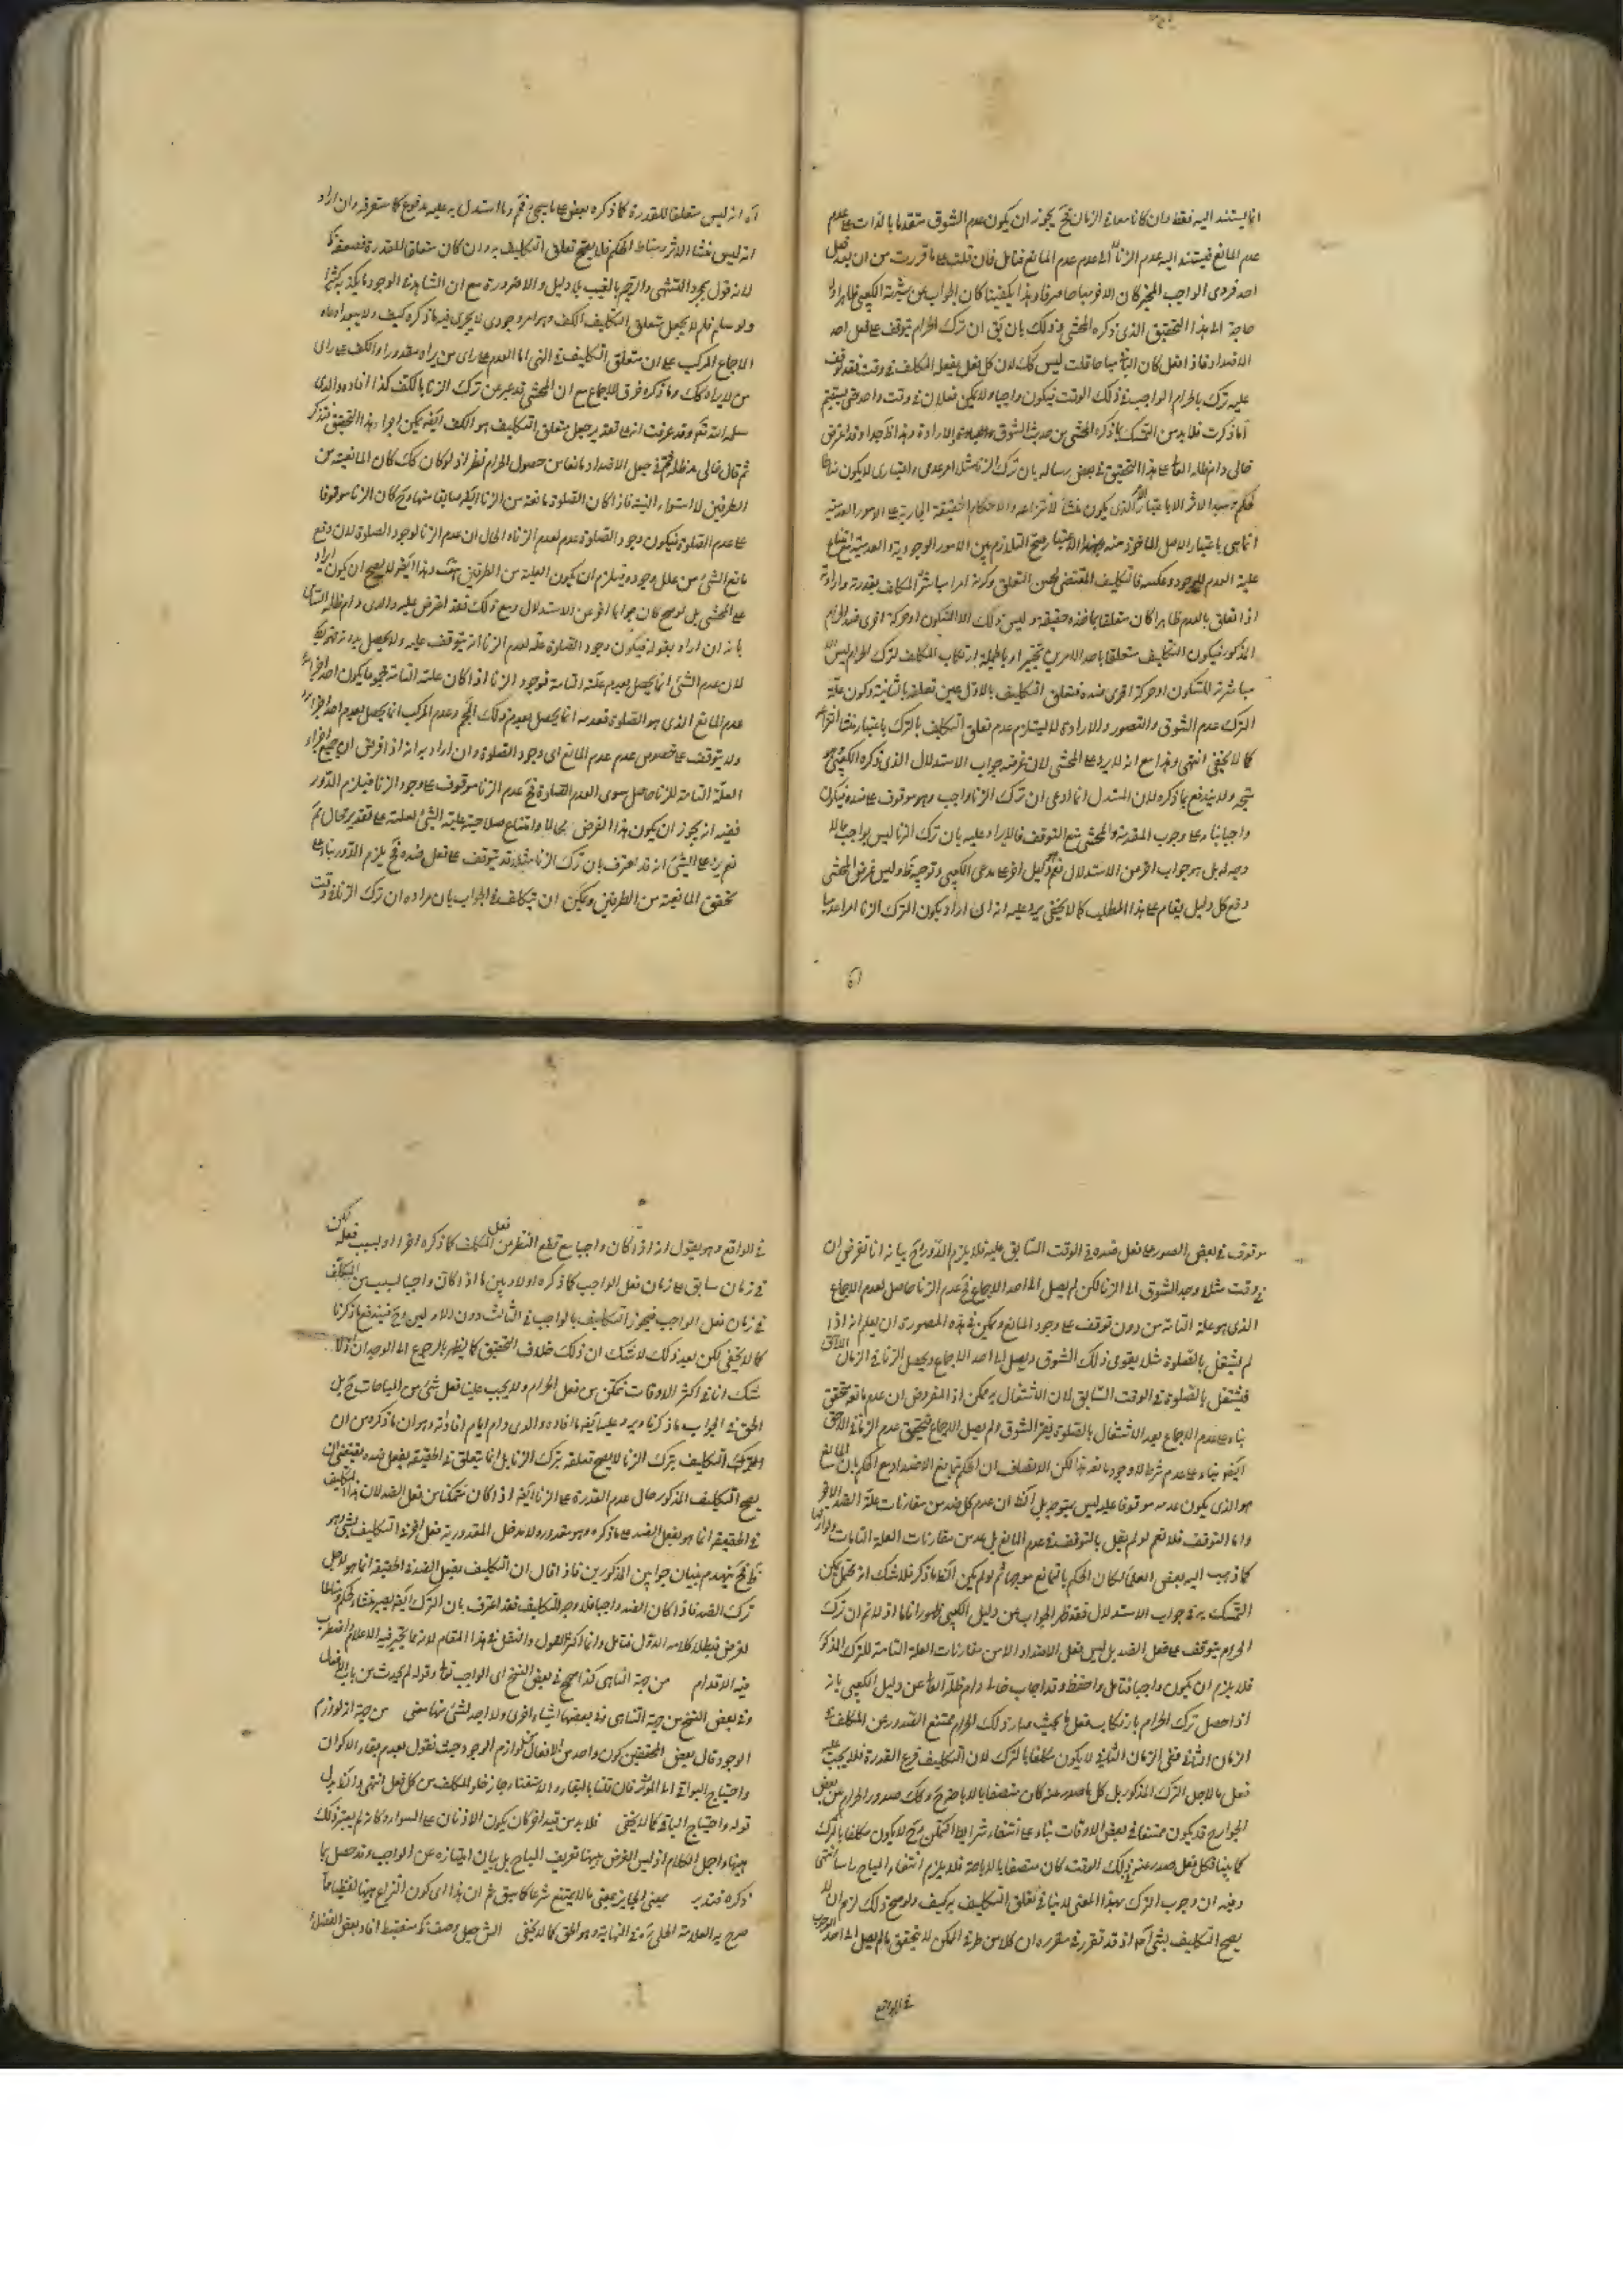 انما يستند اليه فقط وان كانا معا في الزمان فح يجوز ان يكون عدم الشوق متقدما بالذات على عدم
عدم المانع فيستند اليه عدم الزنا لا الى عدم عدم المانع فتامل فان قلت على ما قررت من ان فعل
احد فردى الواجب المخير كان الاخر مباحا صرفا وهذا يكفينا كان الجواب عن شبهة الكعبي ظاهرا ولا
حاجة الى هذا التحقيق الذى ذكره المحشى وذلك بان يق ان ترك الحرام يتوقف على فعل احد
الاضداد فاذا فعل كان الباقي مباحا قلت ليس كك لان كل فعل يفعله المكلف في وقت فقد توقف
عليه ترك الحرام الواجب في ذلك الوقت فيكون واجبا ولا يمكن فعلان في وقت واحد حتى يستقيم
ما ذكرت فلا بد من التمسك بما ذكره المحشى من حديث الشوق والارادة وهذا ظ جدا وقد اعترض
خالى دام ظله العالى على هذا التحقيق في بعض رسائله بان ترك الزنا مثلا امر عدمى واعتبارى لا يكون مناطا
لحكم ومبدأ لاثر الا باعتبار الامر الذى يكون منشأ لانتزاعه والاحكام الحقيقة الجارية على الامور العدمية
انما هى باعتبار الاصل الماخوذة منه وبهذا الاعتبار يصح التلازم بين الامور الوجودية والعدمية مع امتناع
علية العدم للوجود وعكسه فالتكليف المقتضى لحسن التعلق وكونه امرا يباشره المكلف بقدرته وارادته
اذا تعلق بالعدم ظاهرا كان متعلقا بماخذه حقيقة وليس ذلك الا السكون او حركة اخرى ضد الحرام
المذكور فيكون التكليف متعلقا باحد الامرين تخييرا وبالجملة ارتكاب المكلف لترك الحرام ليس الا
مباشرته للسكون او حركة اخرى ضده فتعلق التكليف بالاول عين تعلقه بالثانية وكون علة
الترك عدم الشوق والتصور والارادة لا يستلزم عدم تعلق التكليف بالترك باعتبار منشأ انتزاعه
كما لا يخفى انتهى وهذا مع انه لا يرد على المحشى لان غرضه جواب الاستدلال الذى ذكره الكعبي وهو
متجه ولا يندفع بما ذكره لان المستدل انما ادعى ان ترك الزنا واجب وهو موقوف على ضده فيكون
واجبا بناء على وجوب المقدمة والمحشى منع التوقف فالايراد عليه بان ترك الزنا ليس بواجب مما لا
وجه له بل هو جواب اخر من الاستدلال نعم هو دليل اخر على مدعى الكعبي وتوجيه له وليس غرض المحشى
دفع كل دليل يقام على هذا المطلب كما لا يخفى يرد عليه انه ان اراد بكون الترك الزنا امرا عدميا
آه انه ليس متعلقا للقدرة كما ذكره بعض على ما سيجئ فم وما استدل به عليه مدفوع كما ستعرفه وان اراد
انه ليس منشأ لاثر ومناط لحكم فلا يصح تعلق التكليف به وان كان متعلقا للقدرة فضعفه ظ
لانه قول بمجرد التشهى والرجم بالغيب بلا دليل ولا ضرورة مع ان الشاهد في الوجود ما يكذبه كثيرا
ولو سلم فلم لا يجعل متعلق التكليف الكف وهو امر وجودى لا يجرى فيه ما ذكره كيف ولا يبعد ادعاء
الاجماع المركب على ان متعلق التكليف في النهى اما العدم على راى من يراه مقدورا والكف على راى
من لا يراه كك وما ذكره خرق للاجماع مع ان المحشى قد عبر عن ترك الزنا بالكف كذا افاد والدى
سلمه الله تع وقد عرفت انه على تقدير جعل متعلق التكليف هو الكف ايضا يمكن اجراء هذا التحقيق فتذكر
ثم قال خالى مد ظله ثم في جعل الاضداد مانعا من حصول الحرام نظر اذ لو كان كك كان المانعية من
الطرفين لاستواء النسبة فاذا كان الصلوة مانعة من الزنا كان الزنا مانعا منها وح كان الزنا موقوفا
على عدم الصلوة فيكون وجود الصلوة عدم لعدم الزنا والحال ان عدم الزنا لوجود الصلوة لان رفع
مانع الشئ من علل وجوده فيلزم ان يكون العلية من الطرفين هف وهذا ايضا لا يصح ان يكون ايرادا
على المحشى بل لو صح كان جوابا اخر عن الاستدلال ومع ذلك فقد اعترض عليه والدى دام ظله السامى
بانه ان اراد بقوله فيكون وجود الصلوة علة لعدم الزنا انه يتوقف عليه ولا يحصل بدونه فهو ظ
لان عدم الشئ انما يحصل بعدم علته التامة فوجود الزنا اذا كان علته التامة مجموعا يكون احد اجزائه
عدم المانع الذى هو الصلوة فعدمه انما يحصل بعدم ذلك المجموع وعدم المركب انما يحصل بعدم احد اجزائه
ولا يتوقف على خصوص عدم عدم المانع اى وجود الصلوة وان اراد به انه اذا فرض ان جميع اجزاء
العلة التامة للزنا حاصل سوى العدم الصلوة فح عدم الزنا موقوف على وجود الزنا فيلزم الدور
ففيه انه يجوز ان يكون هذا الفرض محالا وامتناع صلاحية علية الشئ لعلته على تقدير محال ثم
نعم يرد على الشئ انه قد يعترف بان ترك الزنا مثلا قد يتوقف على فعل ضده فح يلزم الدور بناء على
تحقق المانعية من الطرفين ويمكن ان يتكلف في الجواب بان مراده ان ترك الزنا في وقت
موقوف في بعض الصور على فعل ضده في الوقت السابق عليه فلا يلزم الدور ح بيانه انا نفرض ان
في وقت مثلا وجد الشوق الى الزنا لكن لم يصل الى حد الاجماع فح عدم الزنا حاصل لعدم الاجماع
الذى هو علة التامة من دون توقف على وجود المانع ويمكن في هذه الصورة ان يعلم انه اذا
لم يشتغل بالصلوة مثلا يقوى ذلك الشوق ويصل الى حد الاجماع ويحصل الزنا في الزمان الاتى
فيشتغل بالصلوة في الوقت السابق لان الاشتغال به ممكن اذ المفروض ان عدم مانعه متحقق
بناء على عدم الاجماع وبعد الاشتغال بالصلوة يفتر الشوق ولم يصل الاجماع فيتحقق عدم الزنا في الاحق
ايضا بناء على عدم شرطه لا وجود مانعه لكن الانصاف ان الحكم بتمانع الاضداد مع الحكم بان المانع
هو الذى يكون عدمه موقوفا عليه ليس بمتوجه بل الظ ان عدم كل ضد من مقارنات علة الضد الاخر
واما التوقف فلا نعم لو لم يقل بالتوقف في عدم المانع بل عده من مقارنات العلة التامة ولوازمها
كما ذهب اليه بعض العلماء لكان الحكم بالتمانع موجها ثم لو لم يكن الظ ما ذكر فلا شك انه محتمل يمكن
التمسك به في جواب الاستدلال فقد ظهر الجواب عن دليل الكعبي ظهورا تاما اذ لا نم ان ترك
الحرام يتوقف على فعل الضد بل ليس فعل الاضداد الا من مقارنات العلة التامة للترك المذكور
فلا يلزم ان يكون واجبا فتامل واحفظ وقد اجاب خالى دام ظله العالى عن دليل الكعبي بانه
اذا حصل ترك الحرام بارتكاب فعل ما بحيث صار ذلك الحرام ممتنع الصدور عن المكلف في
الزمان الثانى ففى الزمان الثانى لا يكون مكلفا بالترك لان التكليف فرع القدرة فلا يجب عليه
فعل ما لاجل الترك المذكور بل كل ما صدر عنه كان متصفا بالاباحة ح وكك صدور الحرام عن بعض
الجوارح قد يكون ممتنعا في بعض الاوقات بناء على انتفاء شرايط التمكن وح لا يكون مكلفا بالترك
كما بينا فكل فعل صدر عنه في ذلك الوقت كان متصفا بالاباحة فلا يلزم انتفاء المباح راسا انتهى
وفيه ان وجوب الترك بهذا المعنى لا ينافى تعلق التكليف به كيف ولو صح ذلك لزم ان لا
يصح التكليف بشئ آه اذ قد تقرر في مقره ان كلا من طرفى الممكن لا يتحقق ما لم يصل الى حد الوجوب
في الواقع
في الواقع وهو يقول انه اذا كان واجبا مع قطع النظر عن فعل المكلف كما ذكره اخرا او بسبب فعله لكن
في زمان سابق على زمان فعل الواجب كما ذكره اولا وبين ما اذا كان واجبا بسبب من المكلف
في زمان فعل الواجب فيجوز التكليف بالواجب في الثالث دون الاوليين وح فيندفع ما ذكرنا
كما لا يخفى لكن بعد ذلك لا شك ان ذلك خلاف التحقيق كما يظهر بالرجوع الى الوجدان اذ لا
شك انا في اكثر الاوقات نتمكن من فعل الحرام ولا يجب علينا فعل شئ من المباحات ح بل
الحق في الجواب ما ذكرنا ويرد عليه ايضا ما افاده والدى دام ايام افادته وهو ان ما ذكره من ان
التكليف بترك الزنا لا يصح تعلقه بترك الزنا بل انما يتعلق في الحقيقة بفعل ضده يقتضى ان
يصح التكليف المذكور حال عدم القدرة على الزنا ايضا اذا كان متمكنا من فعل الضد لان هذا التكليف
في الحقيقة انما هو بفعل الضد على ما ذكره وهو مقدور ولا مدخل لمقدورية فعل اخر في التكليف بشئ وهو
ظ فح ينهدم بنيان جوابين المذكورين فاذا قال ان التكليف بفعل الضد في الحقيقة انما هو لاجل
ترك الضد فاذا كان الضد واجبا فلا وجه للتكليف فقد اعترف بان الترك ايضا يصير منشأ لحكم ومناطا
لغرض فبطل كلامه الاول فتامل وانما اكثرنا القول والنقل في هذا المقام لانه مما تحير فيه الاعلام واضطرب
فيه الاقدام من جهة التناهى كذا صح في بعض النسخ اى الواجب تعالى وقوله لم يحدث من باب الافعال
وفي بعض النسخ من جهة التناهى وفي بعضها اشياء اخرى ولا اجد لشئ منها معنى من جهة انه لوازم
الوجود قال بعض المحققين كون واحد من الافعال من لوازم الوجود حيث نقول بعدم بقاء الاكوان
واحتياج البواقى الى المؤثر فان قلنا بالبقاء والاستغناء جاز خلو المكلف من كل فعل انتهى والظ بدل
قوله واحتياج الباقى كما لا يخفى فلا بد من قيد اخر كان يكون الاذنان على السواء وكانه لم يعتبر ذلك
هيهنا واجل الكلام اذ ليس الغرض هيهنا تعريف المباح بل بيان امتيازه عن الواجب وقد حصل بما
ذكره فتدبر بمعنى الجايز بمعنى ما لا يمتنع شرعا كما سبق ثم ان هذا اى كون النزاع هيهنا لفظيا مما
صرح به العلامة الحلى ره في النهاية وهو الحق كما لا يخفى الش جعل وصف كذ مستنبط افاد بعض الفضلاء